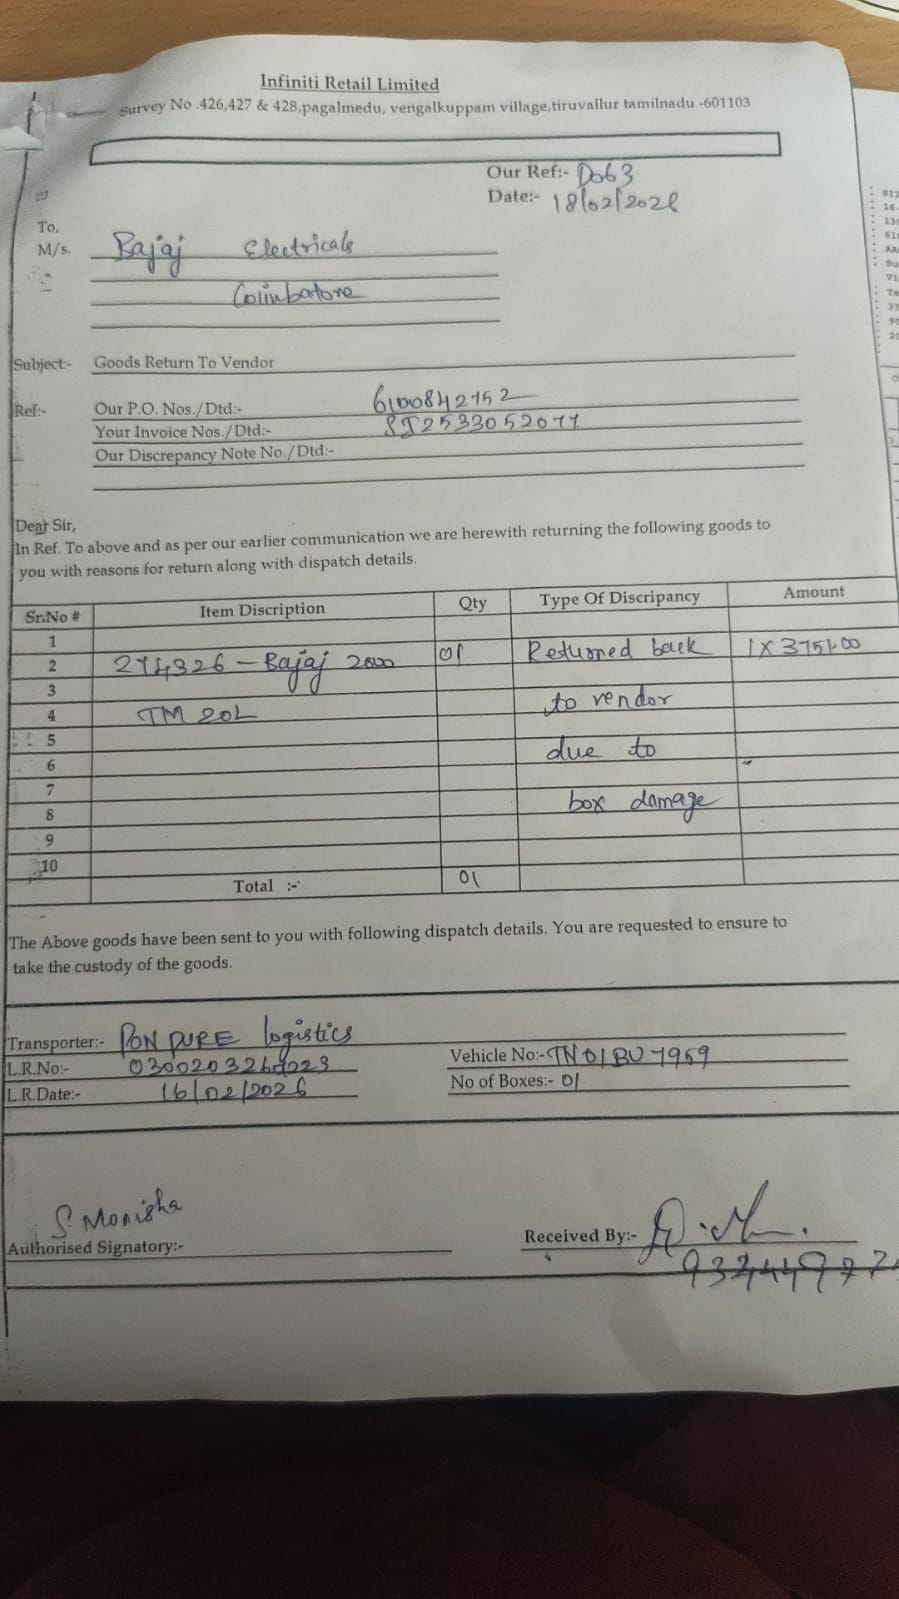 Infiniti Retail Limited
Survey No .426,427 & 428,pagalmedu, vengalkuppam village,tiruvallur tamilnadu -601103
Our Ref:- D063
Date:- 18/02/2026
To,
M/s. Bajaj Electricals
Coimbatore
Subject:- Goods Return To Vendor
Ref:- Our P.O. Nos./Dtd:- 6100842152
Your Invoice Nos./Dtd:-
Our Discrepancy Note No./Dtd:-
Dear Sir,
In Ref. To above and as per our earlier communication we are herewith returning the following goods to
you with reasons for return along with dispatch details.
Sr.No # Item Discription Qty Type Of Discripancy Amount
1
2 274326 - Bajaj 2000 01 Returned back 1X3751.00
3 to vendor
4 TM 20L
5 due to
6
7 box damage
8
9
10
Total :- 01
The Above goods have been sent to you with following dispatch details. You are requested to ensure to
take the custody of the goods.
Transporter:- PON PURE logistics
L.R.No:-
Vehicle No:- TN01BU7959
L.R.Date:- 16/02/2026
No of Boxes:- 01
S. Monisha
Authorised Signatory:-
Received By:-